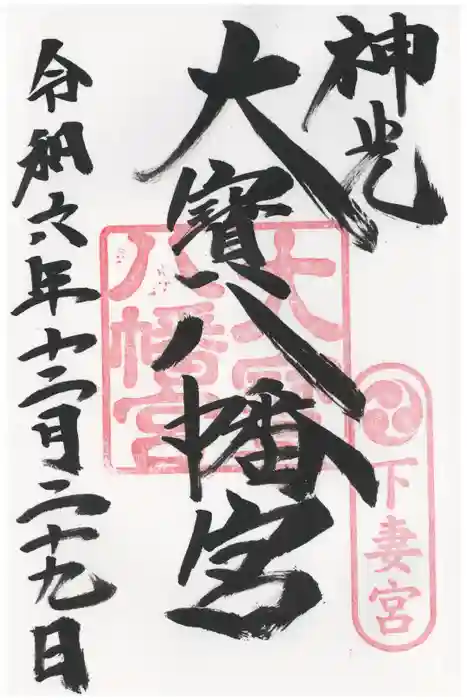 神光
大寳八幡宮
令和六年十二月二十九日
大宝
八幡宮
下妻宮